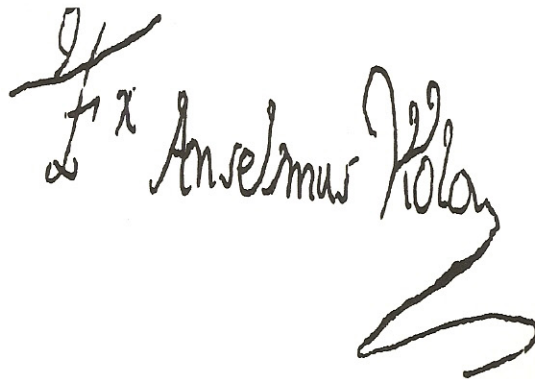 Fr Anselmus Viola